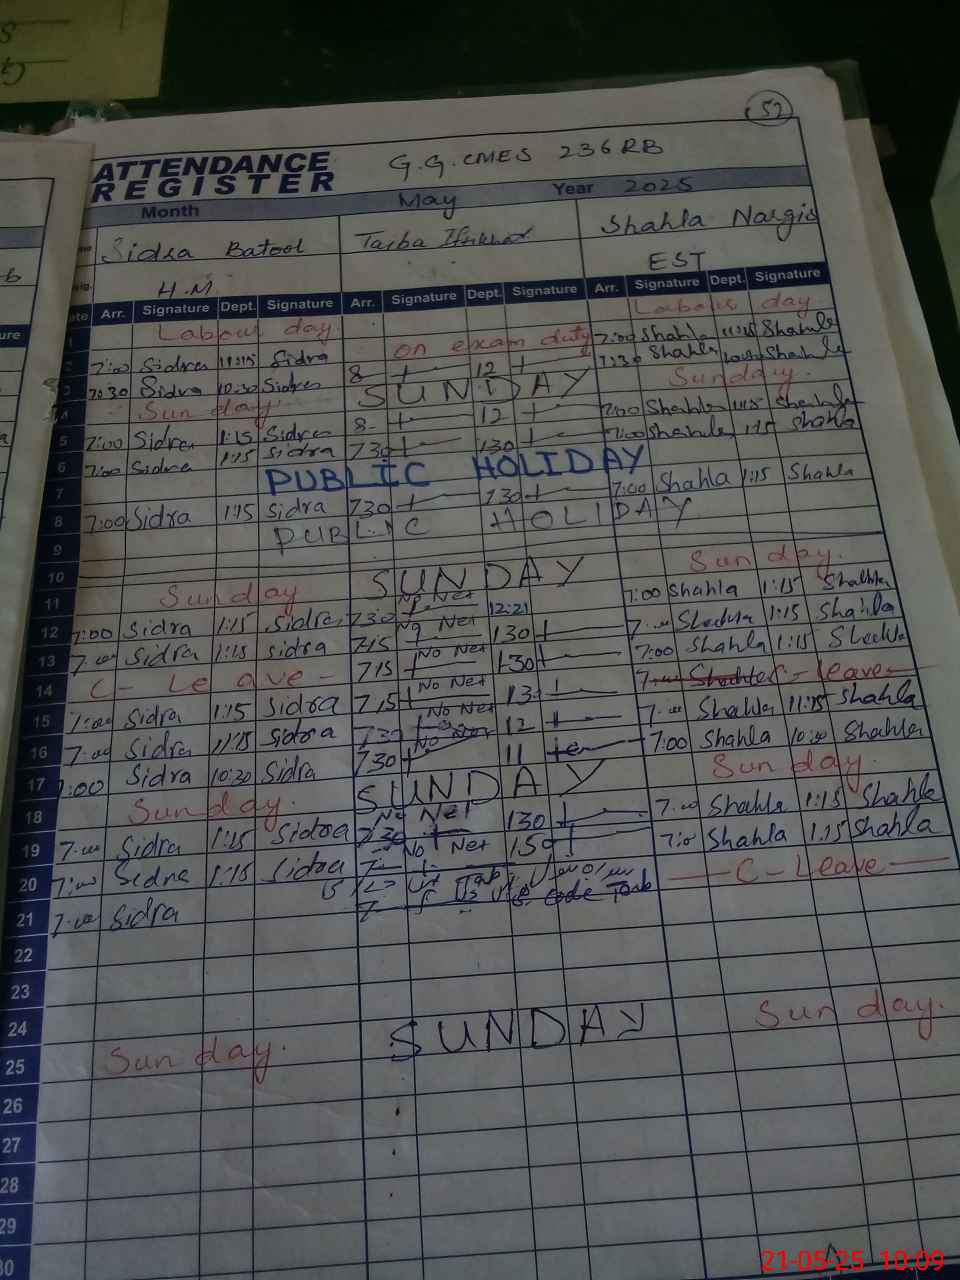 52
ATTENDANCE
REGISTER
G.G.CMES 236RB
Month May Year 2025
Sidra Batool Shahla Nargis
H.M EST
Arr. Signature Dept. Signature Arr. Signature Dept. Signature Arr. Signature Dept. Signature
1 Labour day Labour day
2 7:00 Sidra 11:15 Sidra on exam duty 7:00 Shahla 11:15 Shahla
3 7:30 Sidra 10:30 Sidra 8 12 7:30 Shahla Shahla
4 Sunday SUNDAY Sunday.
5 7:00 Sidra 1:15 Sidra 8 12 7:00 Shahla 1:15 Shahla
6 7:00 Sidra 1:15 Sidra 730 130 7:00 Shahla 1:15 Shahla
7 PUBLIC HOLIDAY
8 7:00 Sidra 1:15 Sidra 730 130 7:00 Shahla 1:15 Shahla
9 PUBLIC HOLIDAY
10
11 Sunday SUNDAY Sunday.
12 7:00 Sidra 1:15 Sidra 730 No Net 12:21 7:00 Shahla 1:15 Shahla
13 7:00 Sidra 1:15 Sidra 715 No Net 130 7:00 Shahla 1:15 Shahla
14 C- Leave - 715 No Net 1-30 7:00 Shahla 1:15 Shahla
15 7:00 Sidra 1:15 Sidra 715 No Net 13 C- Leave
16 7:00 Sidra 11:15 Sidra 730 No Net 12 7:00 Shahla 11:15 Shahla
17 7:00 Sidra 10:30 Sidra 730 No Net 11 7:00 Shahla 10:30 Shahla
18 Sunday. SUNDAY Sunday.
19 7:00 Sidra 1:15 Sidra 730 No Net 130 7:00 Shahla 1:15 Shahla
20 7:00 Sidra 1:15 Sidra No Net 7:0 Shahla 1:15 Shahla
21 7:00 Sidra C-Leave
22
23
24
25 Sunday. SUNDAY Sunday.
26
27
28
29
30
21-05-25 10:09